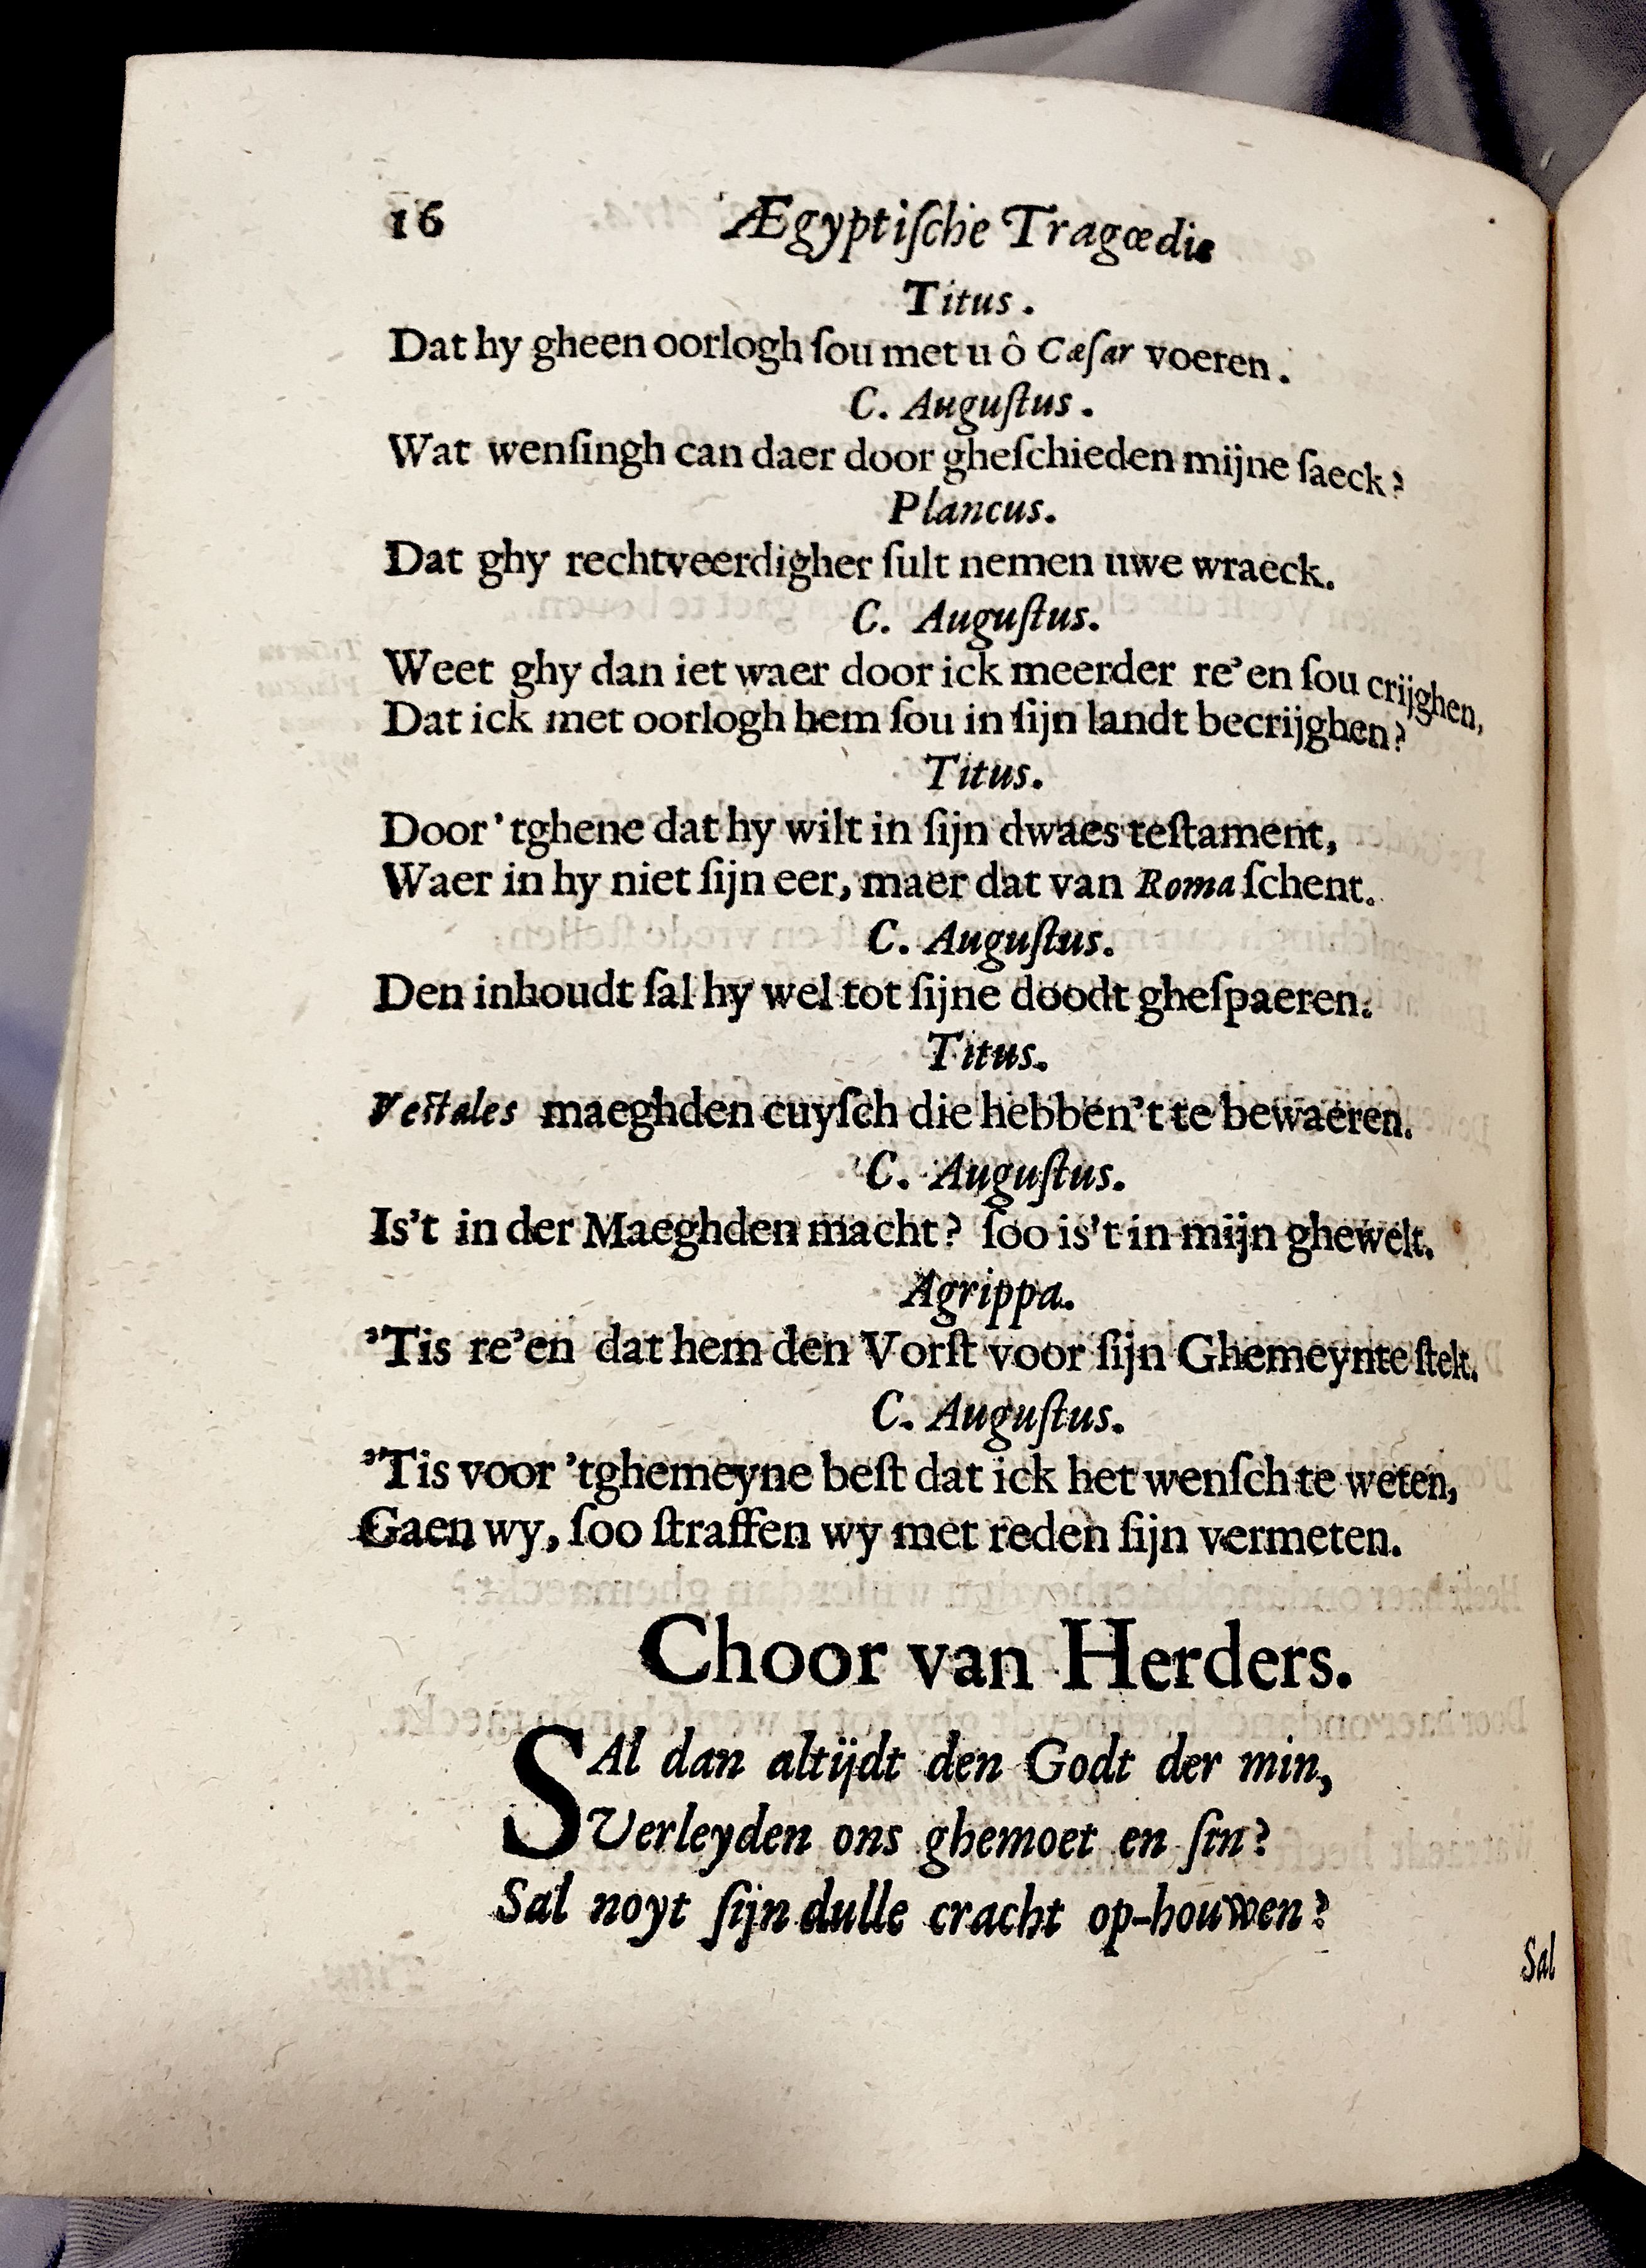 16 Ægyptiſche Tragœdie
Titus.
Dat hy gheen oorlogh ſou met u ô Cæſar voeren.
C. Auguſtus.
Wat wenſingh can daer door gheſchieden mijne ſaeck?
Plancus.
Dat ghy rechtveerdigher ſult nemen uwe wraeck.
C. Auguſtus.
Weet ghy dan iet waer door ick meerder re’en ſou crijghen,
Dat ick met oorlogh hem ſou in ſijn landt becrijghen?
Titus.
Door ’tghene dat hy wilt in ſijn dwaes teſtament,
Waer in hy niet ſijn eer, maer dat van Roma ſchent.
C. Auguſtus.
Den inhoudt ſal hy wel tot ſijne doodt gheſpaeren.
Titus.
Veſtales maeghden cuyſch die hebben’t te bewaeren.
C. Auguſtus.
Is’t in der Maeghden macht? ſoo is’t in mijn ghewelt.
Agrippa.
’Tis re’en dat hem den Vorſt voor ſijn Ghemeynte ſtelt.
C. Auguſtus.
’Tis voor ’tghemeyne beſt dat ick het wenſch te weten,
Gaen wy, ſoo ſtraffen wy met reden ſijn vermeten.
Choor van Herders.
SAl dan altijdt den Godt der min,
Verleyden ons ghemoet en ſin?
Sal noyt ſijn dulle cracht op-houwen?
Sal